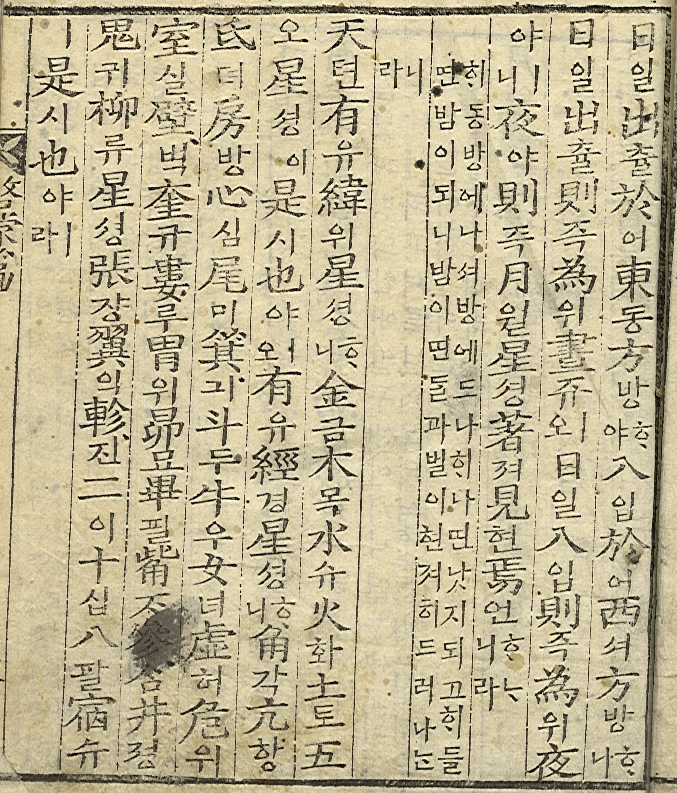 日일出츌於어東동方방ᄒᆞ야入입於어西셔方방ᄒᆞ나
日일出츌則즉為위晝쥬ㅣ오日일入입則즉為위夜
야ㅣ니夜야則즉月월星셩著져見현焉언ᄒᆞᄂᆞ니라
히동방에나셔방에드나히나면낫지되고히들
면밤이되니밤이면들과별이현져히드러나는
니라
天텬有유緯위星셩ᄒᆞ니金금木목水슈火화土토五
오星셩이是시也야ㅣ오有유經경星셩ᄒᆞ니角각亢항
氐뎌房방心심尾미箕긔斗두牛우女녀虛허危위
室실壁벽奎규婁루胃위昴묘畢필觜ᄌᆞ參井졍
鬼귀柳류星셩張쟝翼익軫진二이十십八팔宿슈
ㅣ是시也야ㅣ라
啓蒙篇